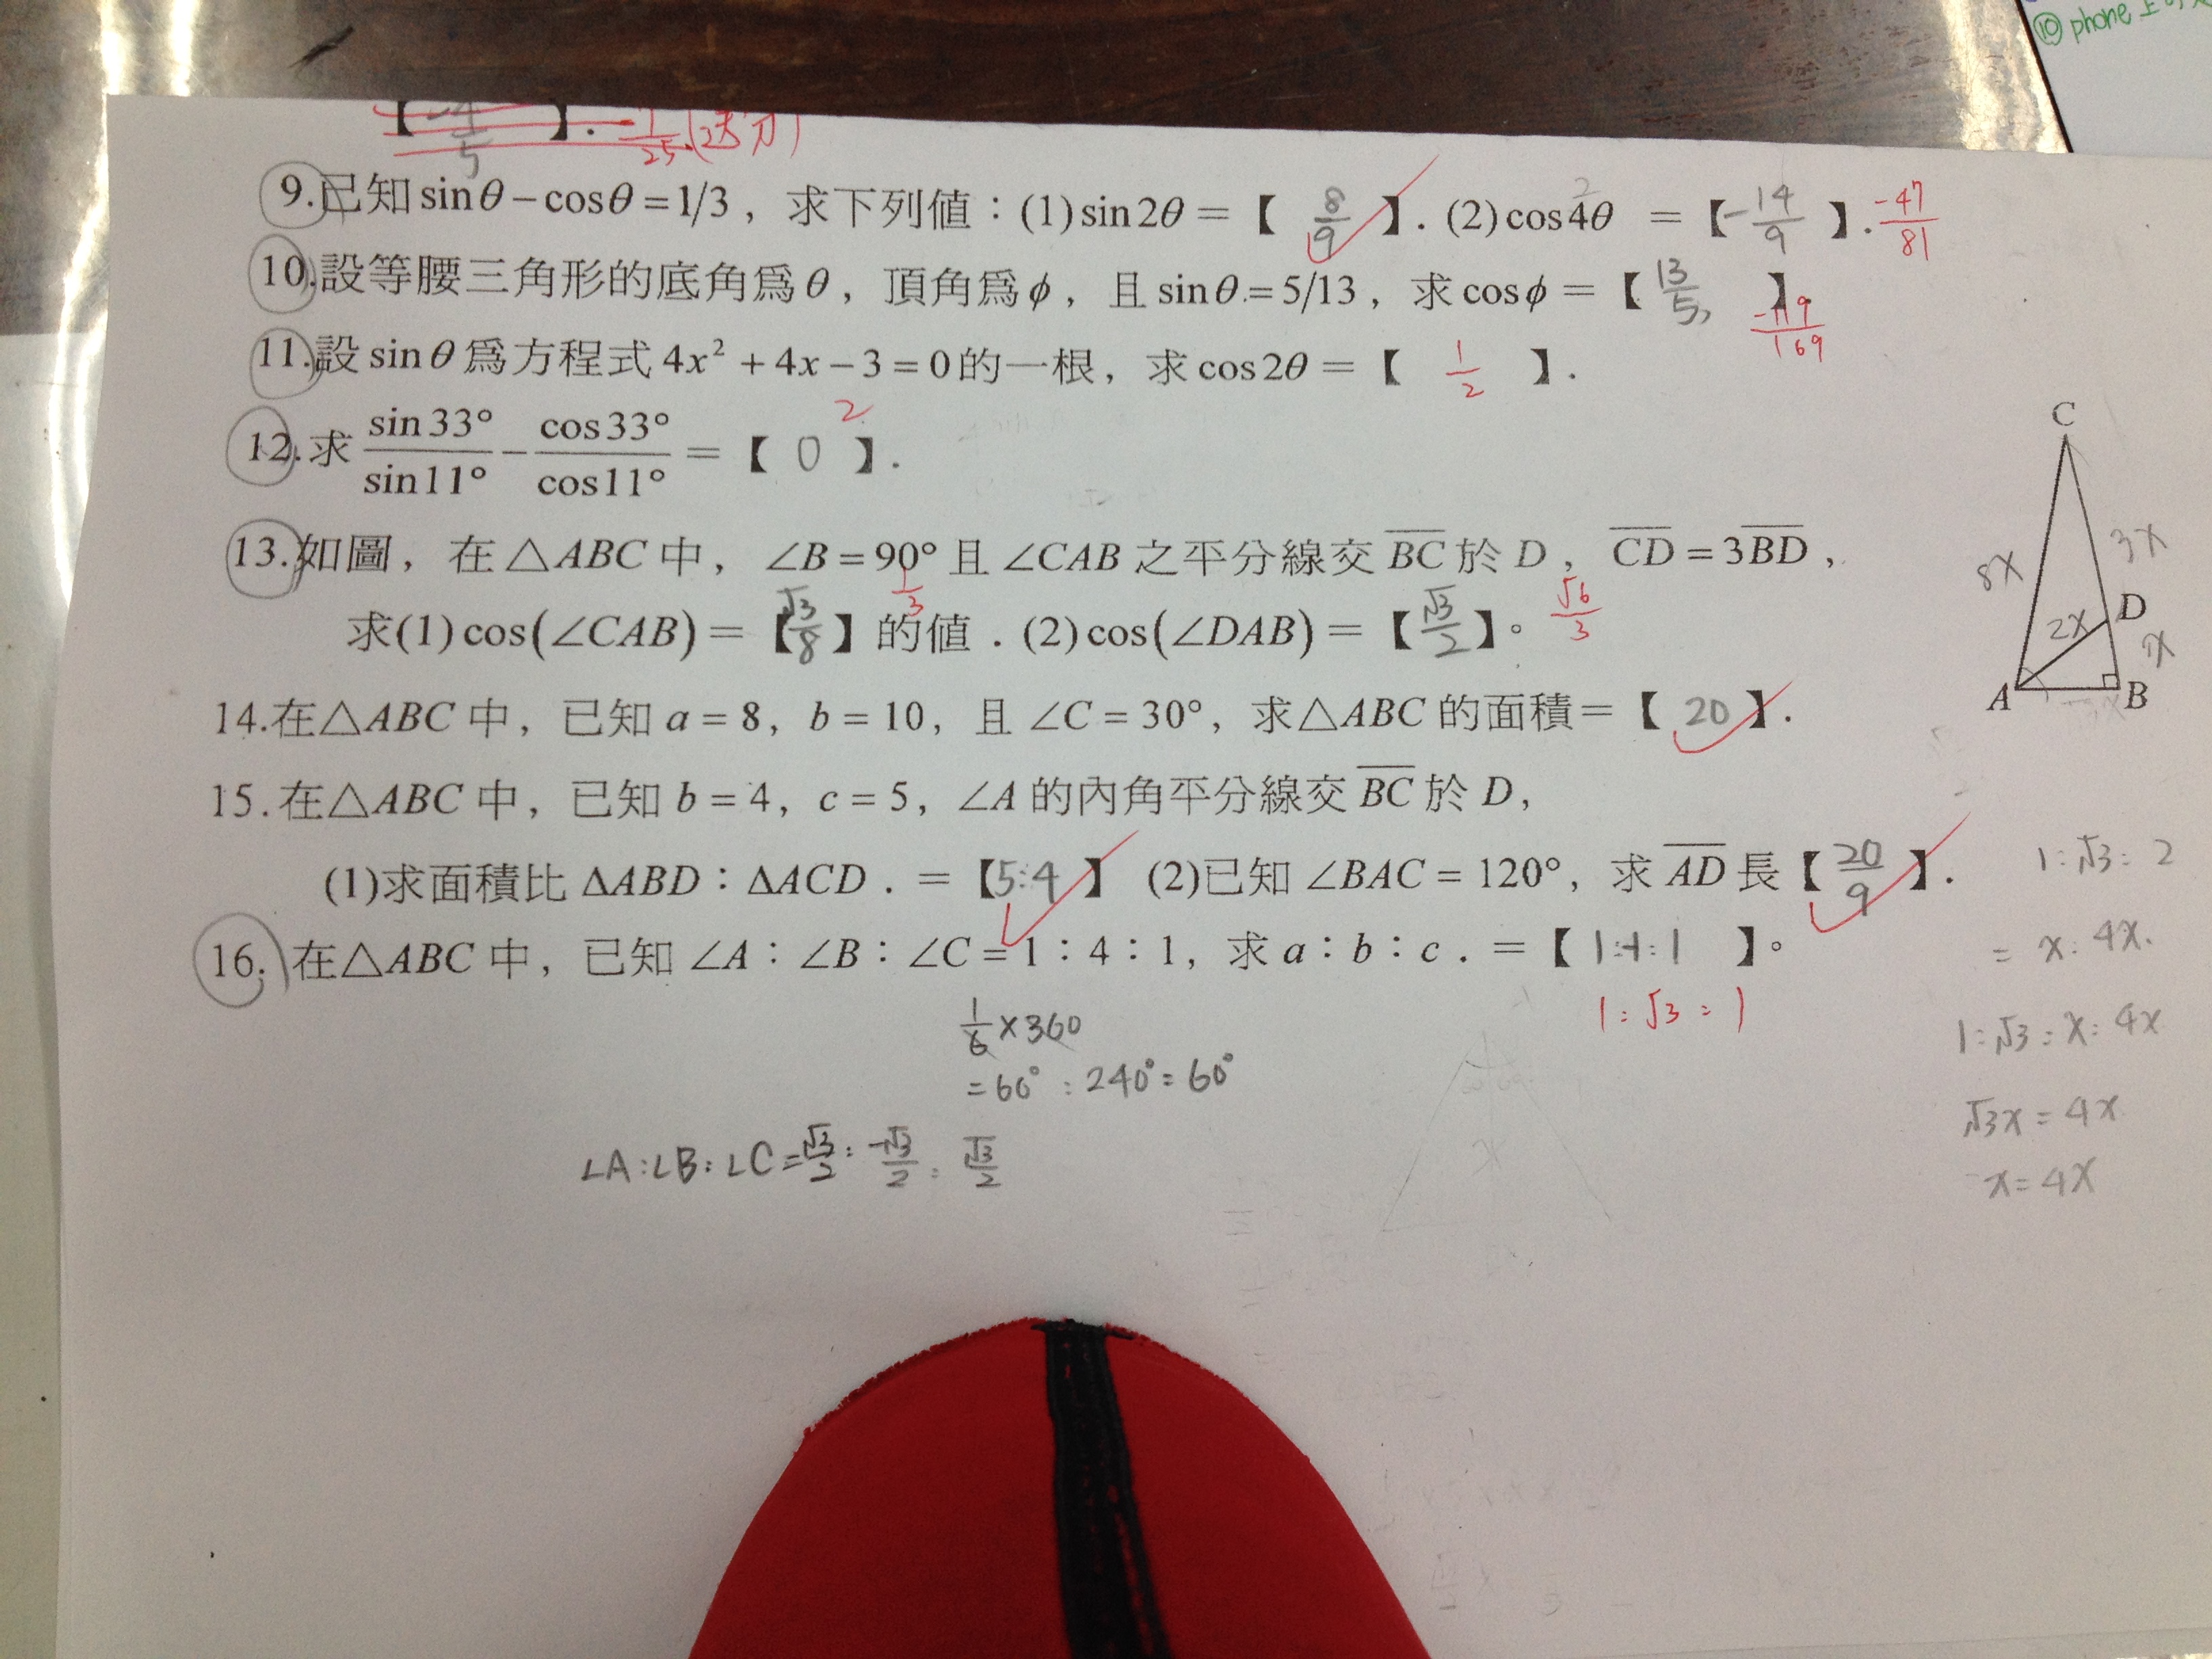 ⑩ phone 上
【 -4/5 】. -1/25 (送分)
9.已知 sinθ－cosθ＝1/3，求下列值：(1) sin2θ＝【 8/9 】. (2) cos4θ ＝【 -14/9 】. -47/81
2
10.設等腰三角形的底角為θ，頂角為ϕ，且 sinθ.＝5/13，求 cosϕ＝【 13/5, 】. -119/169
11.設 sinθ 為方程式 4x² + 4x − 3 = 0 的一根，求 cos2θ＝【 1/2 】.
12.求 sin33°/sin11° − cos33°/cos11° ＝【 0 】. 2
13.如圖，在△ABC 中，∠B = 90° 且 ∠CAB 之平分線交 BC 於 D，CD = 3BD，
求(1) cos(∠CAB)＝【 √3/8 】的值．(2) cos(∠DAB)＝【 √3/2 】。 √6/3
1/3
C
8x
3x
D
2x
x
A
B
14.在△ABC 中，已知 a = 8，b = 10，且 ∠C = 30°，求△ABC 的面積＝【 20 】.
15.在△ABC 中，已知 b = 4，c = 5，∠A 的內角平分線交 BC 於 D，
(1)求面積比 ΔABD：ΔACD．＝【5:4】 (2)已知 ∠BAC = 120°，求 AD 長【 20/9 】.
16. 在△ABC 中，已知 ∠A：∠B：∠C = 1：4：1，求 a：b：c．＝【 1:4:1 】。
1:√3:1
1/6 × 360
= 60° : 240° = 60°
∠A:∠B:∠C = √3/2 : -√3/2 : √3/2
1:√3:2
= x:4x.
1:√3 = x:4x
√3x = 4x
x = 4x